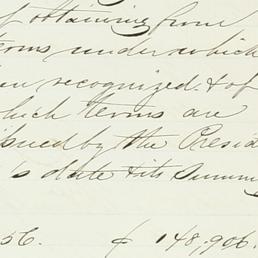 of obtaining from
terms under which
recognized & of
which terms are
by the Presid
's date & its Summ
56. 148,906.